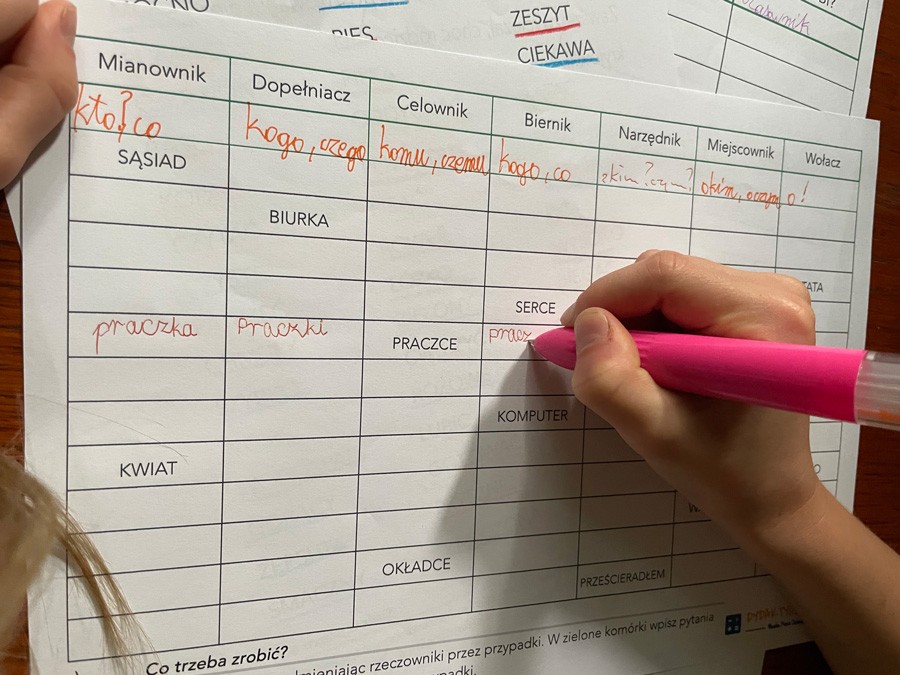 NO
ZESZYT
PIES
CIEKAWA
Mianownik Dopełniacz Celownik Biernik Narzędnik Miejscownik Wołacz
kto? co kogo, czego komu, czemu kogo, co zkim? czym? okim, oczym o!
SĄSIAD
BIURKA
TATA
SERCE
praczka praczki PRACZCE pracz
KOMPUTER
KWIAT
OKŁADCE PRZEŚCIERADŁEM
Co trzeba zrobić?
rzeczowniki przez przypadki. W zielone komórki wpisz pytania